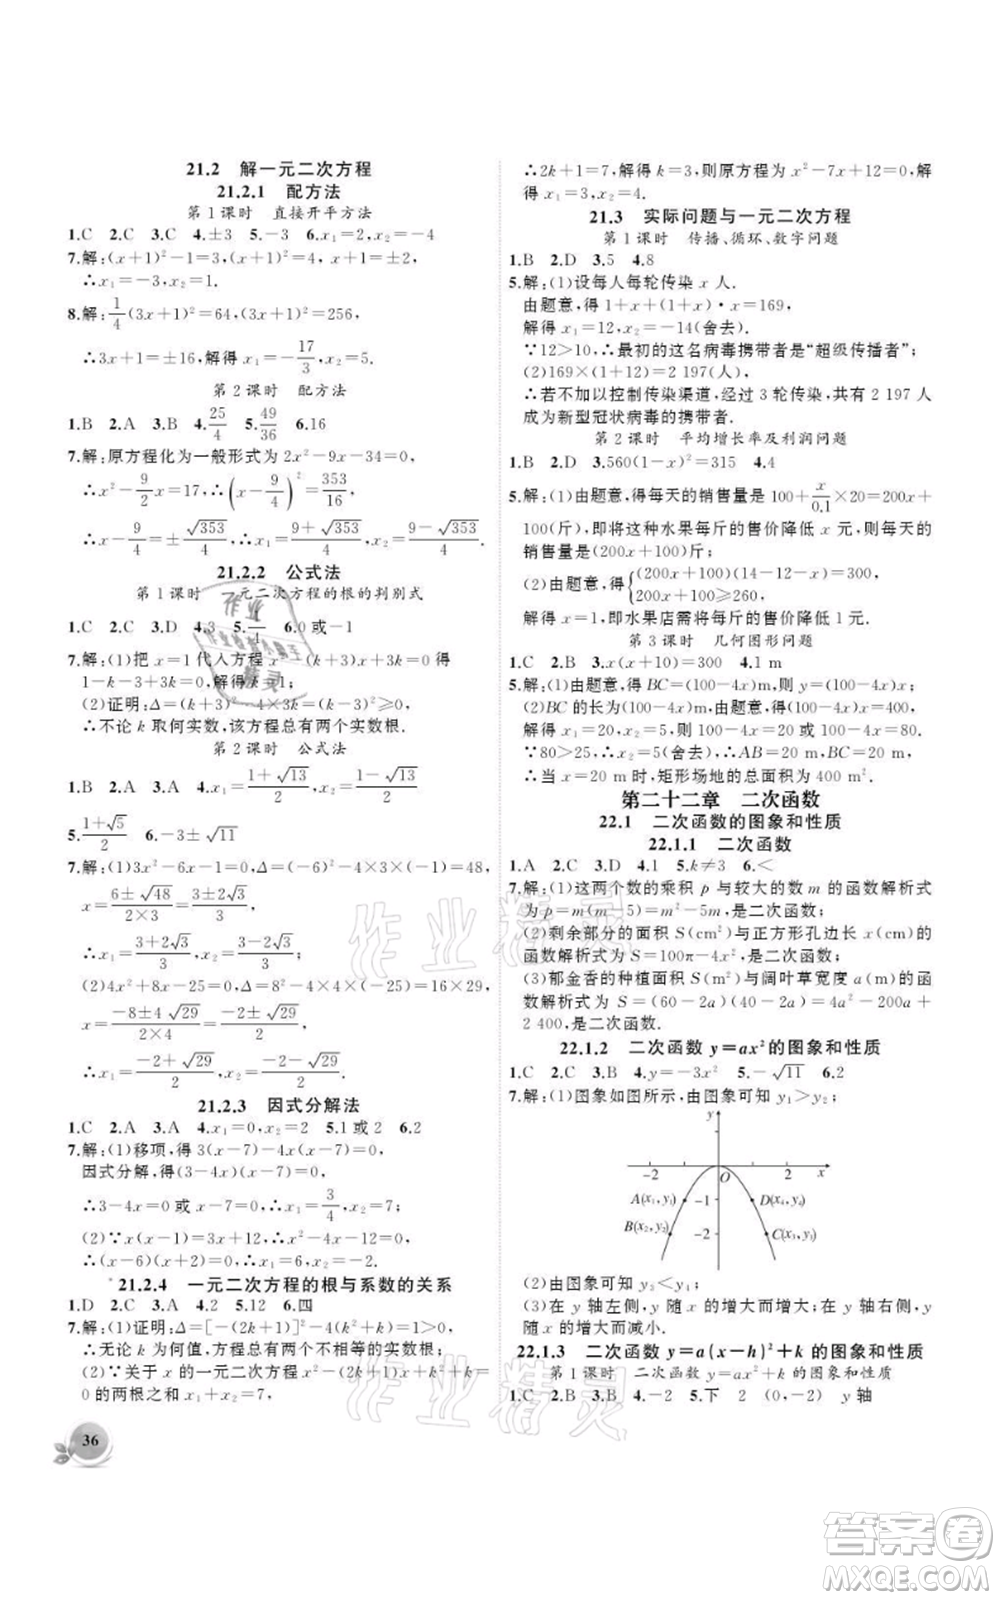 21.2 解一元二次方程
21.2.1 配方法
第1课时 直接开平方法
1.C 2.C 3.C 4.±3 5.－3 6.x₁=2,x₂=－4
7.解:(x+1)²－1=3,(x+1)²=4,x+1=±2,
∴x₁=－3,x₂=1.
8.解:1/4(3x+1)²=64,(3x+1)²=256,
∴3x+1=±16,解得x₁=－17/3,x₂=5.
第2课时 配方法
1.B 2.A 3.B 4.25/4 5.49/36 6.16
7.解:原方程化为一般形式为2x²－9x－34=0,
∴x²－9/2x=17,∴(x－9/4)²=353/16,
∴x－9/4=±√353/4,∴x₁=(9+√353)/4,x₂=(9－√353)/4.
21.2.2 公式法
第1课时 一元二次方程的根的判别式
1.C 2.C 3.D 4.3 5.1/4 6.0或－1
7.解:(1)把x=1代入方程x²－(k+3)x+3k=0得
1－k－3+3k=0,解得k=1;
(2)证明:Δ=(k+3)²－4×3k=(k－3)²≥0,
∴不论k取何实数,该方程总有两个实数根.
第2课时 公式法
1.B 2.D 3.A 4.x₁=(1+√13)/2,x₂=(1－√13)/2
5.(1+√5)/2 6.－3±√11
7.解:(1)3x²－6x－1=0,Δ=(－6)²－4×3×(－1)=48,
x=(6±√48)/(2×3)=(3±2√3)/3,
∴x₁=(3+2√3)/3,x₂=(3－2√3)/3.
(2)4x²+8x－25=0,Δ=8²－4×4×(－25)=16×29,
x=(－8±4√29)/(2×4)=(－2±√29)/2,
∴x₁=(－2+√29)/2,x₂=(－2－√29)/2.
21.2.3 因式分解法
1.C 2.A 3.A 4.x₁=0,x₂=2 5.1或2 6.2
7.解:(1)移项,得3(x－7)－4x(x－7)=0,
因式分解,得(3－4x)(x－7)=0,
∴3－4x=0或x－7=0,∴x₁=3/4,x₂=7.
(2)∵(x－1)²－7(x－1)－8=0,
∴(x－6)(x－2)=0,∴x₁=6,x₂=2.
*21.2.4 一元二次方程的根与系数的关系
1.D 2.C 3.A 4.2 5.12 6.四
7.解:(1)证明:Δ=[－(2k+1)]²－4(k²+k)=1>0,
∴无论k为何值,方程总有两个不相等的实数根;
(2)∵关于x的一元二次方程x²－(2k+1)x+k²+k=
0的两根之和为x₁+x₂=7,
∴2k+1=7,解得k=3,则原方程为x²－7x+12=0,解
得x₁=3,x₂=4.
21.3 实际问题与一元二次方程
第1课时 传播、循环、数字问题
1.B 2.D 3.5 4.8
5.解:(1)设每人每轮传染x人.
由题意,得1+x+(1+x)·x=169,
解得x₁=12,x₂=－14(舍去).
∵12>10,∴最初的这名病毒携带者是“超级传播者”;
(2)169×(1+12)=2 197(人),
∴若不加以控制传染渠道,经过3轮传染,共有2 197人
成为新型冠状病毒的携带者.
第2课时 平均增长率及利润问题
1.B 2.D 3.560(1－x)²=315 4.4
5.解:(1)由题意,得每天的销售量是100+x/0.1×20=200x+
100(斤),即将这种水果每斤的售价降低x元,则每天的
销售量是(200x+100)斤;
(2)由题意,得{(200x+100)(14－12－x)=300,
200x+100≥260,
解得x=1,即水果店需将每斤的售价降低1元.
第3课时 几何图形问题
1.C 2.B 3.x(x+10)=300 4.1 m
5.解:(1)由题意,得BC=(100－4x)m,S=(100－4x)x;
(2)BC的长为(100－4x)m,由题意,得(100－4x)x=400,
解得x₁=20,x₂=5.当x=5时,100－4x=80,
∵80>25,∴x₂=5(舍去),∴AB=20,BC=20,
∴当x=20 m时,矩形场地的总面积为400 m².
第二十二章 二次函数
22.1 二次函数的图象和性质
22.1.1 二次函数
1.A 2.C 3.D 4.1 5.k≠3 6.<
7.解:(1)这两个数的乘积p与较大的数m的函数解析式
为p=m(m－5)=m²－5m,是二次函数;
(2)剩余部分的面积S(cm²)与正方形孔边长x(cm)的
函数解析式为S=100π－4x²,是二次函数;
(3)郁金香的种植面积S(m²)与阔叶草宽度a(m)的函
数解析式为S=(60－2a)(40－2a)=4a²－200a+
2 400,是二次函数.
22.1.2 二次函数y=ax²的图象和性质
1.C 2.C 3.B 4.y=－3x² 5.－√11 6.2
7.解:(1)图象如图所示,由图象可知y₁>y₂;
y
－2 O 2 x
A(x₁,y₁) －1 D(x₄,y₄)
B(x₂,y₂) －2 C(x₃,y₃)
(2)由图象可知y₃<y₁;
(3)在y轴左侧,y随x的增大而增大;在y轴右侧,y随x
的增大而减小.
22.1.3 二次函数y=a(x－h)²+k的图象和性质
第1课时 二次函数y=ax²+k的图象和性质
1.C 2.B 3.B 4.－2 5.下 2 y轴
36
作业精灵
作业精灵
作业精灵
答案卷
MXQE.COM